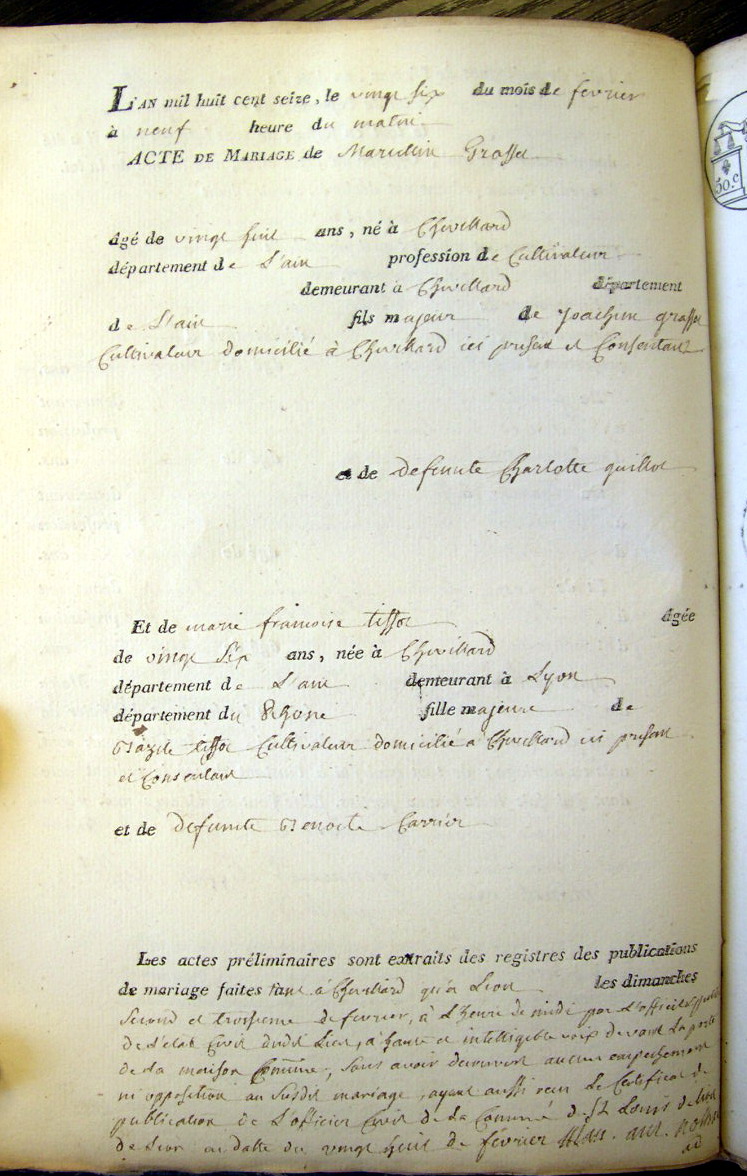 L'AN mil huit cent seize, le vingt six du mois de fevrier
à neuf heure du matin
ACTE DE MARIAGE de Marcellin Grosset
âgé de vingt huit ans, né à Chevillard
département de L'ain profession de Cultivateur
demeurant à Chevillard département
de L'ain fils majeur de Joachim grosset
Cultivateur domicilié à Chevillard ici present et Consentant
et de defunte Charlotte guillot
Et de marie francoise tissot âgée
de vingt Six ans, née à Chevillard
département de L'ain demeurant à Lyon
département du Rhone fille majeure de
Bazile tissot Cultivateur domicilié a Chevillard ici present
et Consentant
et de defunte Benoite Carrier
Les actes préliminaires sont extraits des registres des publications
de mariage faites tant à Chevillard qu'a Lion les dimanches
Second et troisieme de fevrier, à L'heure de midi par L'officier
de L'etat Civil dudit Lieu, à haute et intelligible voix devant La porte
de La maison Commune, Sans avoir decouvert aucun empechement
ni opposition au Susdit mariage, ayant aussi recu Le Certificat de
publication de L'officier Civil de La Commune de St Louis
de Lion en datte du vingt huit de fevrier
50.c